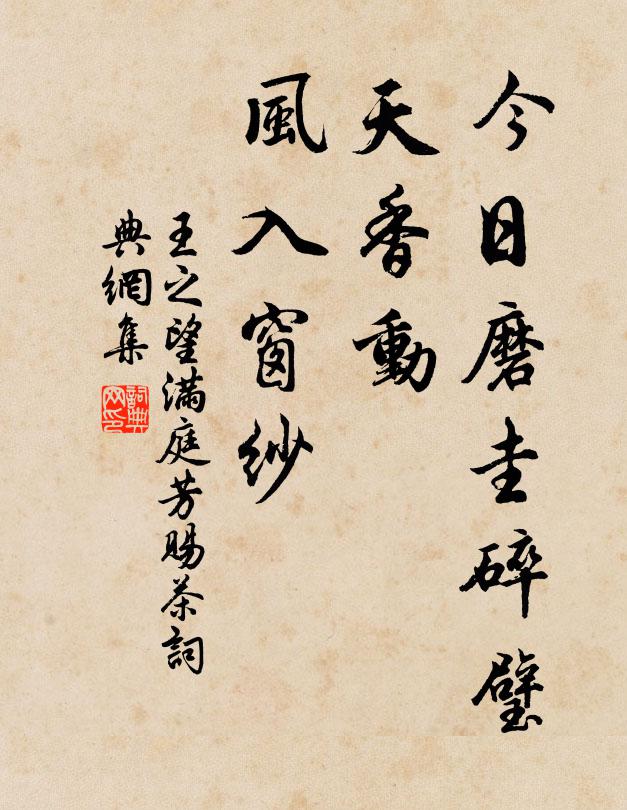 今日磨圭碎璧
天香動
風入窗紗
王之望滿庭芳賜茶詞
典網集
詞典
网印